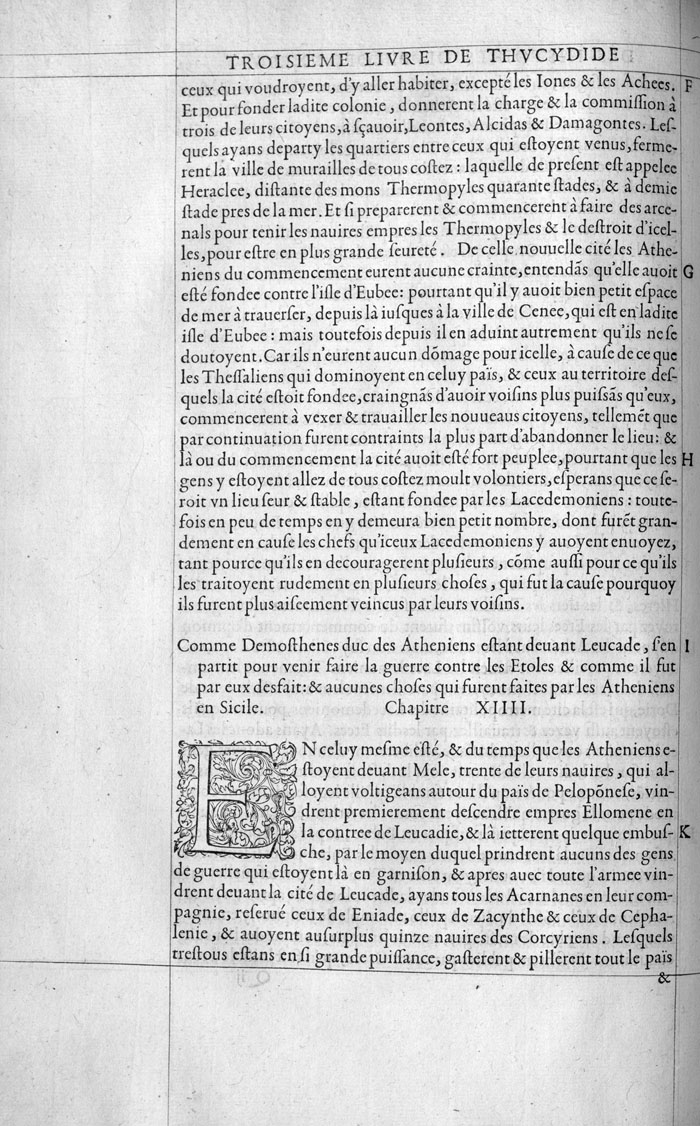 TROISIEME LIVRE DE THVCYDIDE
ceux qui voudroyent, d'y aller habiter, excepté les Iones & les Achees. F
Et pour fonder ladite colonie, donnerent la charge & la commiſſion à
trois de leurs citoyens, à ſçauoir, Leontes, Alcidas & Damagontes. Leſ-
quels ayans departy les quartiers entre ceux qui eſtoyent venus, ferme-
rent la ville de murailles de tous coſtez : laquelle de preſent eſt appelee
Heraclee, diſtante des mons Thermopyles quarante ſtades, & à demie
ſtade pres de la mer. Et ſi preparerent & commencerent à faire des arce-
nals pour tenir les nauires empres les Thermopyles & le deſtroit d'icel-
les, pour eſtre en plus grande ſeureté. De celle nouuelle cité les Athe-
niens du commencement eurent aucune crainte, entendãs qu'elle auoit G
eſté fondee contre l'iſle d'Eubee: pourtant qu'il y auoit bien petit eſpace
de mer à trauerſer, depuis là iuſques à la ville de Cenee, qui eſt en ladite
iſle d'Eubee : mais toutefois depuis il en aduint autrement qu'ils ne ſe
doutoyent. Car ils n'eurent aucun dõmage pour icelle, à cauſe de ce que
les Theſſaliens qui dominoyent en celuy païs, & ceux au territoire deſ-
quels la cité eſtoit fondee, craingnãs d'auoir voiſins plus puiſſãs qu'eux,
commencerent à vexer & trauailler les nouueaux citoyens, tellemẽt que
par continuation furent contraints la plus part d'abandonner le lieu: &
là ou du commencement la cité auoit eſté fort peuplee, pourtant que les H
gens y eſtoyent allez de tous coſtez moult volontiers, eſperans que ce ſe-
roit vn lieu ſeur & ſtable, eſtant fondee par les Lacedemoniens : toute-
fois en peu de temps en y demeura bien petit nombre, dont furẽt gran-
dement en cauſe les chefs qu'iceux Lacedemoniens y auoyent enuoyez,
tant pource qu'ils en decouragerent pluſieurs, cõme auſſi pour ce qu'ils
les traitoyent rudement en pluſieurs choſes, qui fut la cauſe pourquoy
ils furent plus aiſcement veincus par leurs voiſins.
Comme Demoſthenes duc des Atheniens eſtant deuant Leucade, ſ'en I
partit pour venir faire la guerre contre les Etoles & comme il fut
par eux desfait: & aucunes choſes qui furent faites par les Atheniens
en Sicile. Chapitre XIIII.
EN celuy meſme eſté, & du temps que les Atheniens e-
ſtoyent deuant Mele, trente de leurs nauires, qui al-
loyent voltigeans autour du païs de Pelopõneſe, vin-
drent premierement deſcendre empres Ellomene en
la contree de Leucadie, & là ietterent quelque embuſ- K
che, par le moyen duquel prindrent aucuns des gens
de guerre qui eſtoyent là en garniſon, & apres auec toute l'armee vin-
drent deuant la cité de Leucade, ayans tous les Acarnanes en leur com-
pagnie, reſerué ceux de Eniade, ceux de Zacynthe & ceux de Cepha-
lenie, & auoyent auſurplus quinze nauires des Corcyriens. Leſquels
treſtous eſtans en ſi grande puiſſance, gaſterent & pillerent tout le païs
&